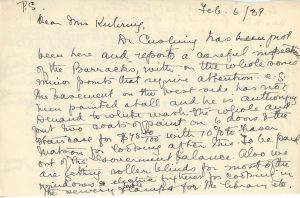 P.S.
Feb. 6/39
Dear Mrs Kuhring,
Dr Cushing has been just
been here and reports a careful inspection
of the Barracks, with on the whole some
minor points that require attention e.g.
the basement on the west side has not
been painted at all and he is authorizing
Durand to white wash the whole and
put two coats of paint on 6 doors & the
staircase for $75.00 with 10% to Fraser
Watson for looking after this. To be paid
out of the Government balance. Also we
are getting roller blinds for most of the
windows & electric fixtures for
the sewing & lamps for the library etc.